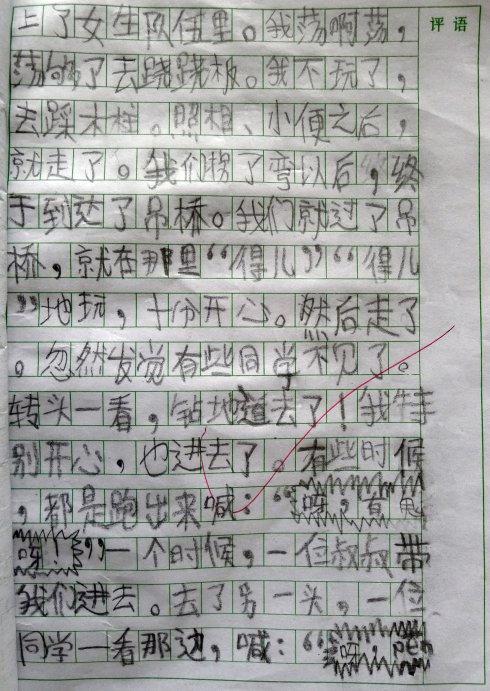 评语
上了女生队伍里。我荡啊荡，
荡够了去跷跷板。我不玩了，
去踩木柱。照相、小便之后，
就走了。我们拐了弯以后，终
于到达了吊桥。我们就过了吊
桥，就在那里“得儿”“得儿
”地玩，十分开心。然后走了
。忽然发觉有些同学不见了。
转头一看，钻地道去了！我特
别开心，也进去了。有些时候
，都是跑出来喊：“呀，有鬼
呀！”一个时候，一位叔叔带
我们进去。去了另一头，一位
同学一看那边，喊：“呀，